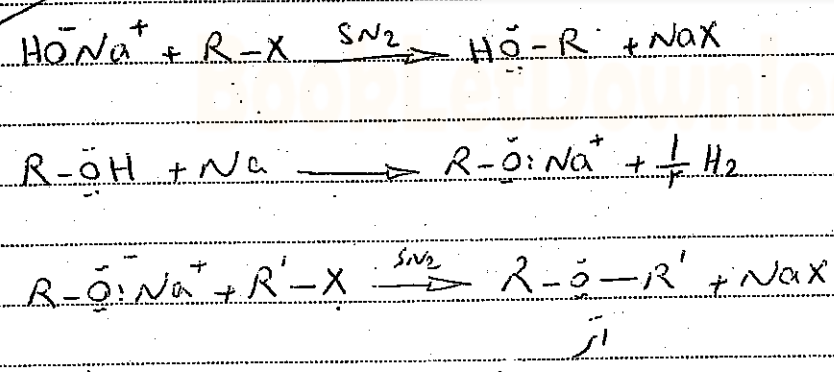 HO⁻Na⁺ + R-X SN2→ HO-R + NaX
R-OH + Na → R-O: Na⁺ + 1/۲ H2
R-O:⁻ Na⁺ + R'-X SN2→ R-O-R' + NaX
اتر